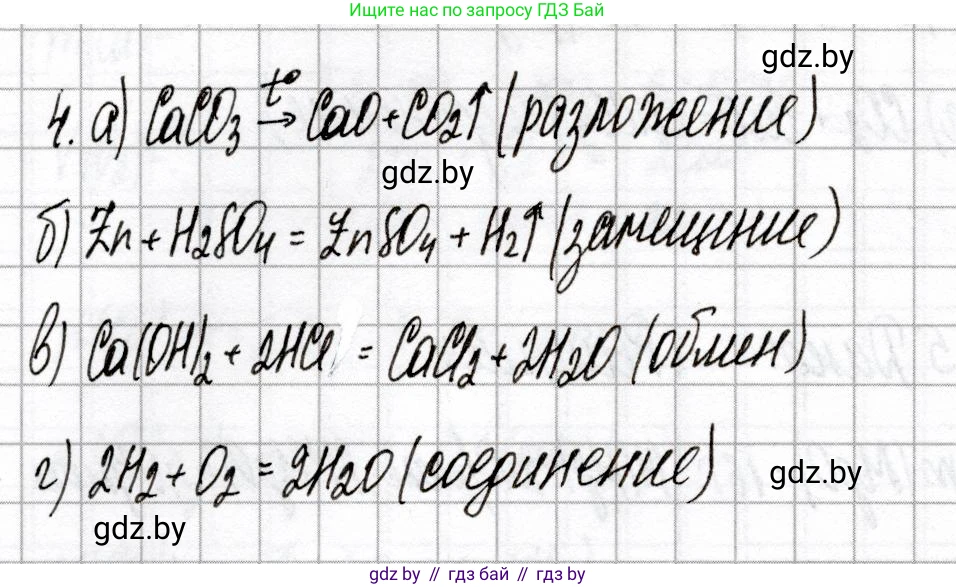 Ищите нас по запросу ГДЗ Бай
gdz.by
4. а) CaCO₃ t° → CaO + CO₂↑ (разложение)
gdz.by
б) Zn + H₂SO₄ = ZnSO₄ + H₂↑ (замещение)
в) Ca(OH)₂ + 2HCl = CaCl₂ + 2H₂O (обмен)
г) 2H₂ + O₂ = 2H₂O (соединение)
gdz.by
gdz.by
gdz.by // гдз бай // gdz.by